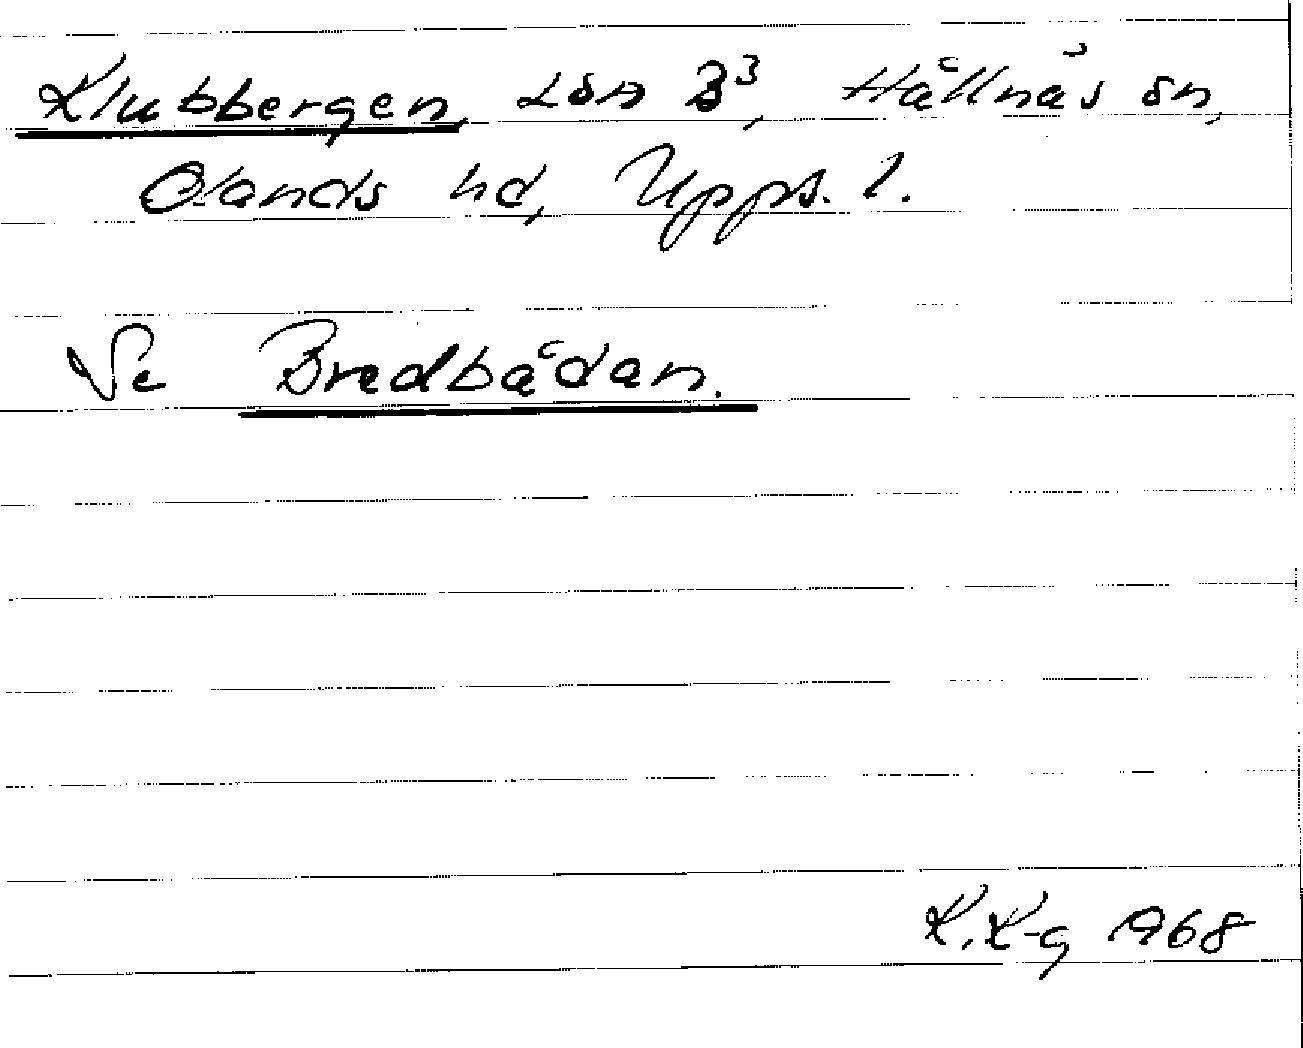 Klubbergen, Lön B³, Hållnäs sn,
Olands hd, Upps. l.
Se Bredbådan.
K. K-g 1968